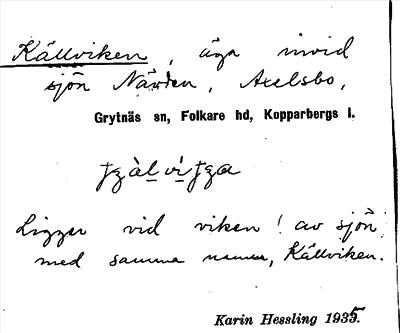 Källviken, äga invid
sjön Närden, Axelsbo,
Grytnäs sn, Folkare hd, Kopparbergs l.
Ligger vid viken! av sjön
med samma namn, Källviken.
Karin Hessling 1935.